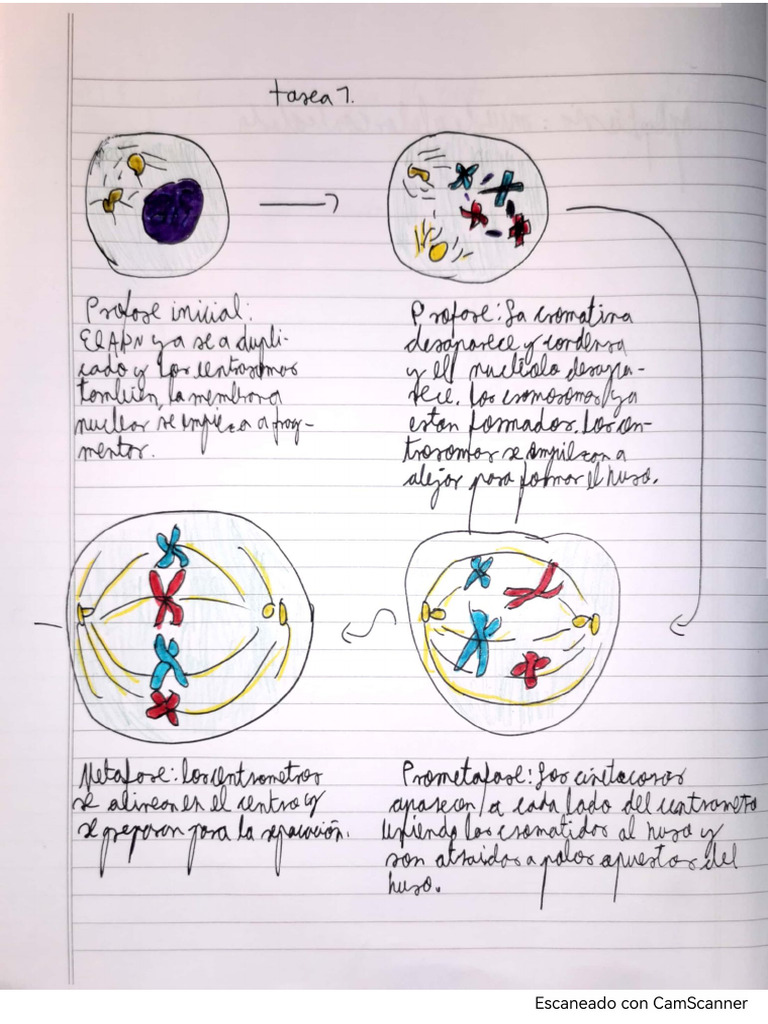 tarea 1.
Profase inicial:
El ADN ya se a dupli-
cado y los centrosomas
también, la membrana
nuclear se empieza a frag-
mentar.
Profase: La cromatina
desaparece y condensa
y el nucléolo desapa-
rece. Los cromosomas ya
estan formados. Los cen-
trosomas se empiezan a
alejar para formar el huso.
Metafase: los centrometros
se alinean en el centro y
se preparan para la separación.
Prometafase: Los cinetocoros
aparecen a cada lado del centrometro
uniendo las cromatidas al huso y
son atraidas a polos opuestos del
huso.
Escaneado con CamScanner